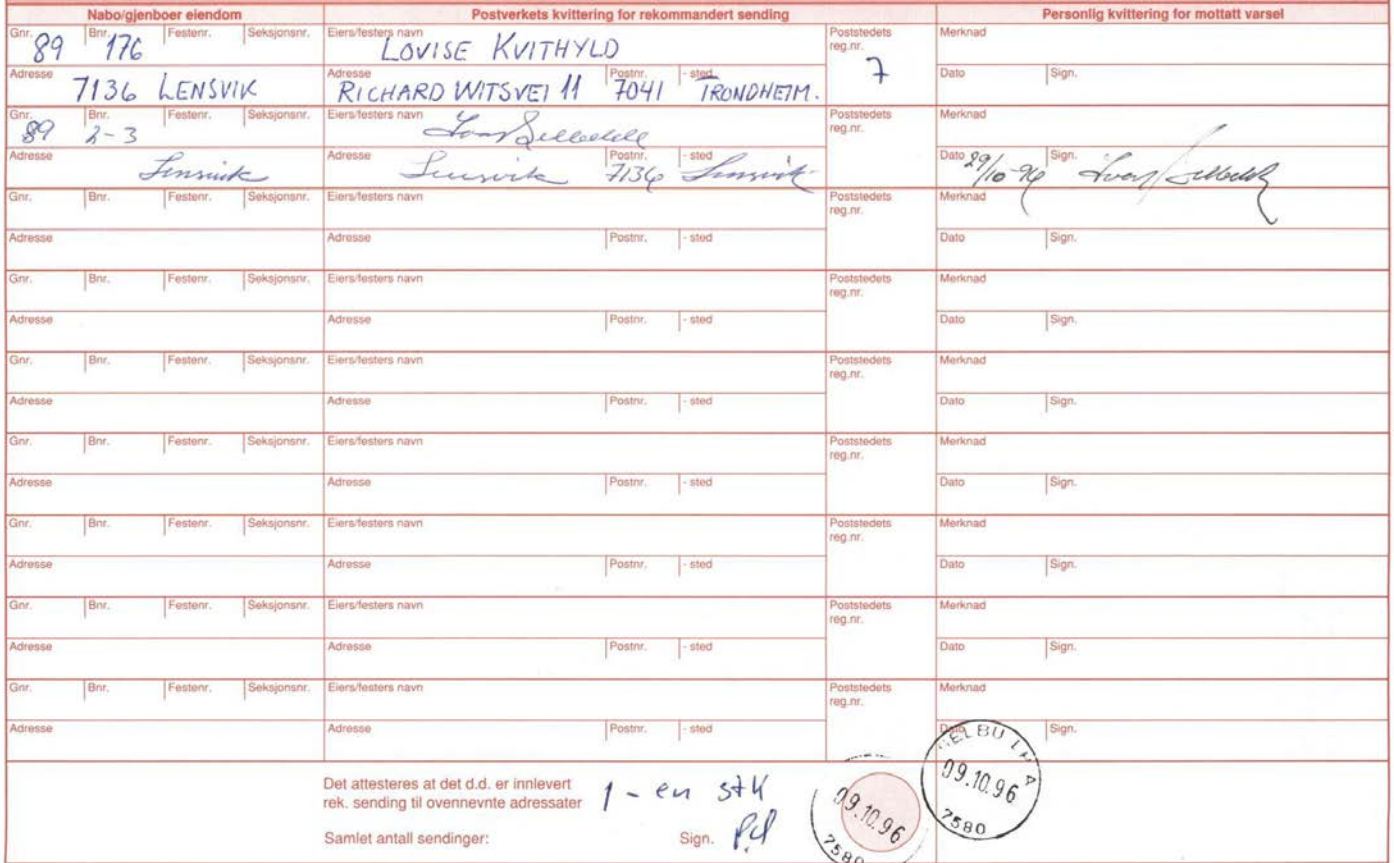 Nabo/gjenboer eiendom Postverkets kvittering for rekommandert sending Personlig kvittering for mottatt varsel
Gnr. Bnr. Festenr. Seksjonsnr. Eiers/festers navn Poststedets reg.nr. Merknad
89 176 LOVISE KVITHYLD 7
Adresse Adresse Postnr. - sted Dato Sign.
7136 LENSVIK RICHARD WITSVEI 11 7041 TRONDHEIM.
Gnr. Bnr. Festenr. Seksjonsnr. Eiers/festers navn Poststedets reg.nr. Merknad
89 2-3
Adresse Adresse Postnr. - sted Dato Sign.
Lensvik Lensvik 7136 Lensvik 29/10-96
Gnr. Bnr. Festenr. Seksjonsnr. Eiers/festers navn Poststedets reg.nr. Merknad
Adresse Adresse Postnr. - sted Dato Sign.
Gnr. Bnr. Festenr. Seksjonsnr. Eiers/festers navn Poststedets reg.nr. Merknad
Adresse Adresse Postnr. - sted Dato Sign.
Gnr. Bnr. Festenr. Seksjonsnr. Eiers/festers navn Poststedets reg.nr. Merknad
Adresse Adresse Postnr. - sted Dato Sign.
Gnr. Bnr. Festenr. Seksjonsnr. Eiers/festers navn Poststedets reg.nr. Merknad
Adresse Adresse Postnr. - sted Dato Sign.
Gnr. Bnr. Festenr. Seksjonsnr. Eiers/festers navn Poststedets reg.nr. Merknad
Adresse Adresse Postnr. - sted Dato Sign.
Gnr. Bnr. Festenr. Seksjonsnr. Eiers/festers navn Poststedets reg.nr. Merknad
Adresse Adresse Postnr. - sted Dato Sign.
Gnr. Bnr. Festenr. Seksjonsnr. Eiers/festers navn Poststedets reg.nr. Merknad
Adresse Adresse Postnr. - sted Dato Sign.
Det attesteres at det d.d. er innlevert
rek. sending til ovennevnte adressater 1 - en stk
Samlet antall sendinger: Sign.
09.10.96
7580
09.10.96
7580